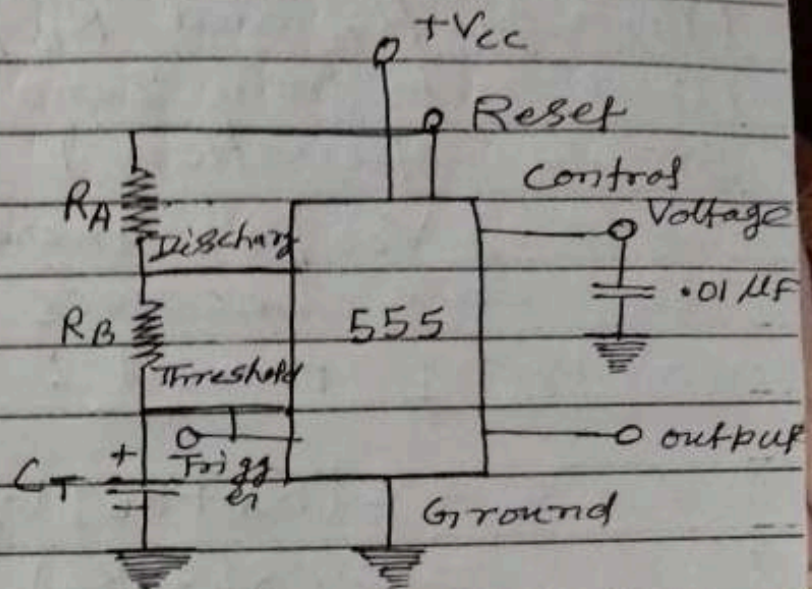 +Vcc
Reset
Control
Voltage
RA
Discharg
.01 μF
RB
555
Threshold
output
CT
+
Trigg
er
-
Ground